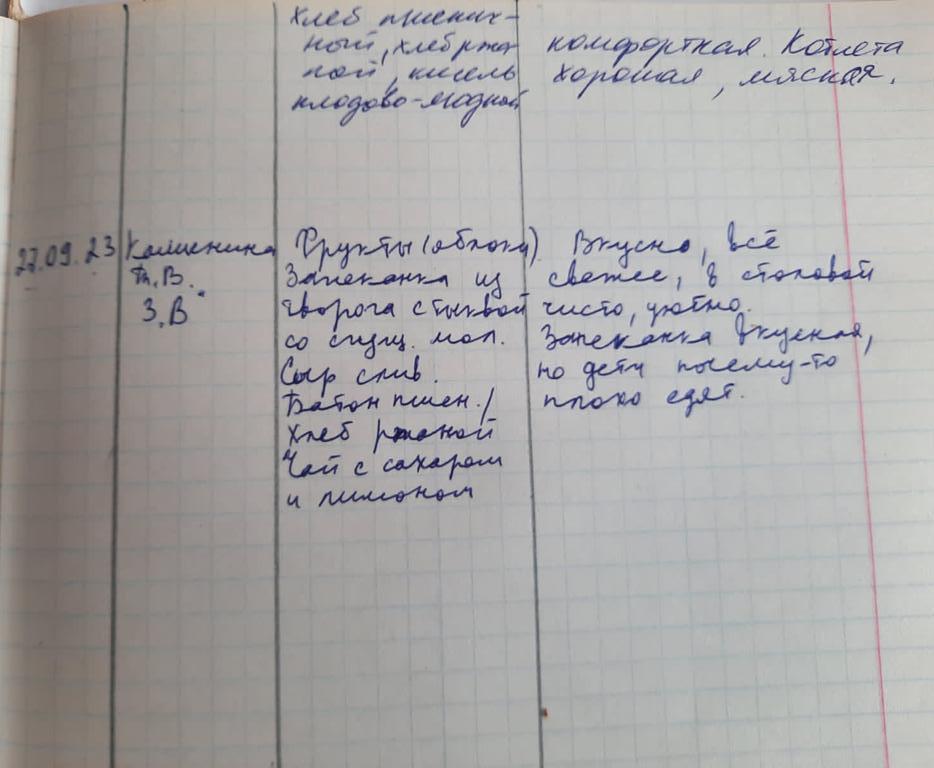 хлеб пшенич-
ный, хлеб ржа-
ной, кисель
плодово-ягодный
комфортная. Котлета
хорошая, мясная.
22.09.23
Калинина
Т.В.
3.В
Фрукты (яблоко)
Запеканка из
творога с тыквой
со сгущ. мол.
Сыр слив.
Батон пшен./
Хлеб ржаной
Чай с сахаром
и лимоном
Вкусно, всё
свежее, в столовой
чисто, уютно.
Запеканка вкусная,
но дети почему-то
плохо едят.